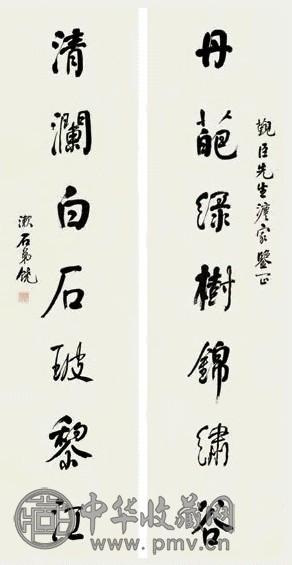 覲臣先生灋家鑒正
丹葩緑樹錦繡谷
清瀾白石玻黎江
漱石弟
中华收藏网
www.pmv.cn